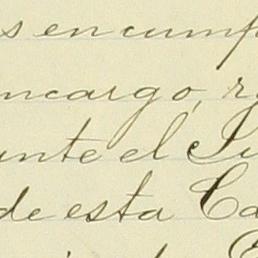 s en cump
ncargo, r
ante el Ju
de esta Ca